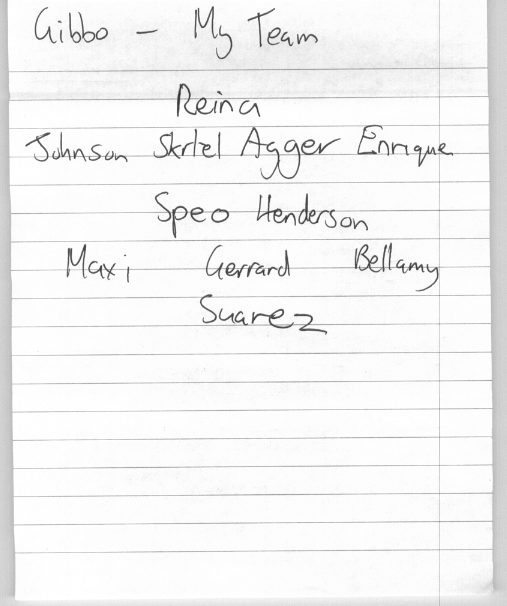 Gibbo - My Team
Reina
Johnson Skrtel Agger Enrique
Speo Henderson
Maxi Gerrard Bellamy
Suarez